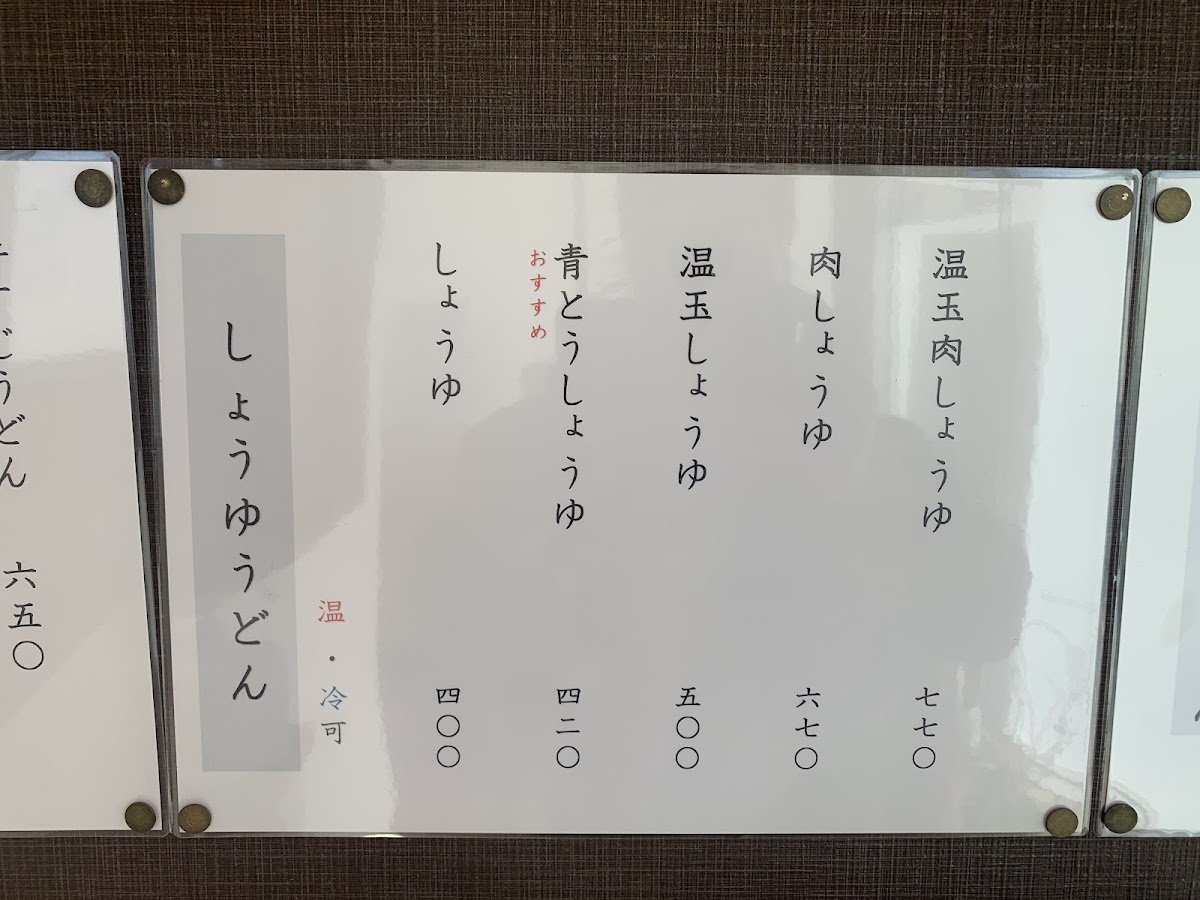 うどん 六五〇
しょうゆうどん
温・冷可
しょうゆ 四〇〇
おすすめ
青とうしょうゆ 四二〇
温玉しょうゆ 五〇〇
肉しょうゆ 六七〇
温玉肉しょうゆ 七七〇